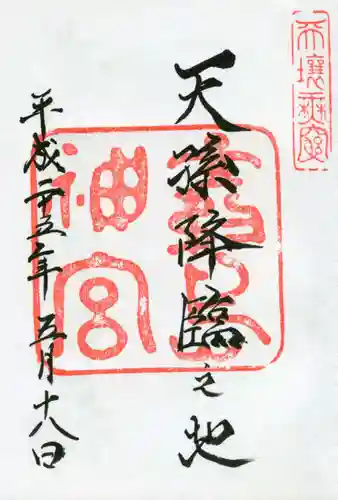 天壌無窮
天孫降臨之地
霧島
神宮
平成二十五年五月十八日